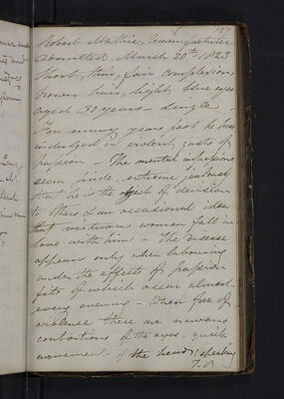 127
Robert Mathie,
admitted March 20th 1823
Short, thin, fair complexion,
brown hair, light blue eyes
aged 30 years – Single
For many years past he has
indulged in violent gusts of
passion – The mental
seem pride extreme jealousy
that he is the object of derision
to others & an occasional idea
that various women fall in
love with him – The disease
appears only when labouring
under the effects of passion
fits of which occur almost
every evening – When free of
violence there are nervous
contortions of the eyes, quick
movement of the head, speaking